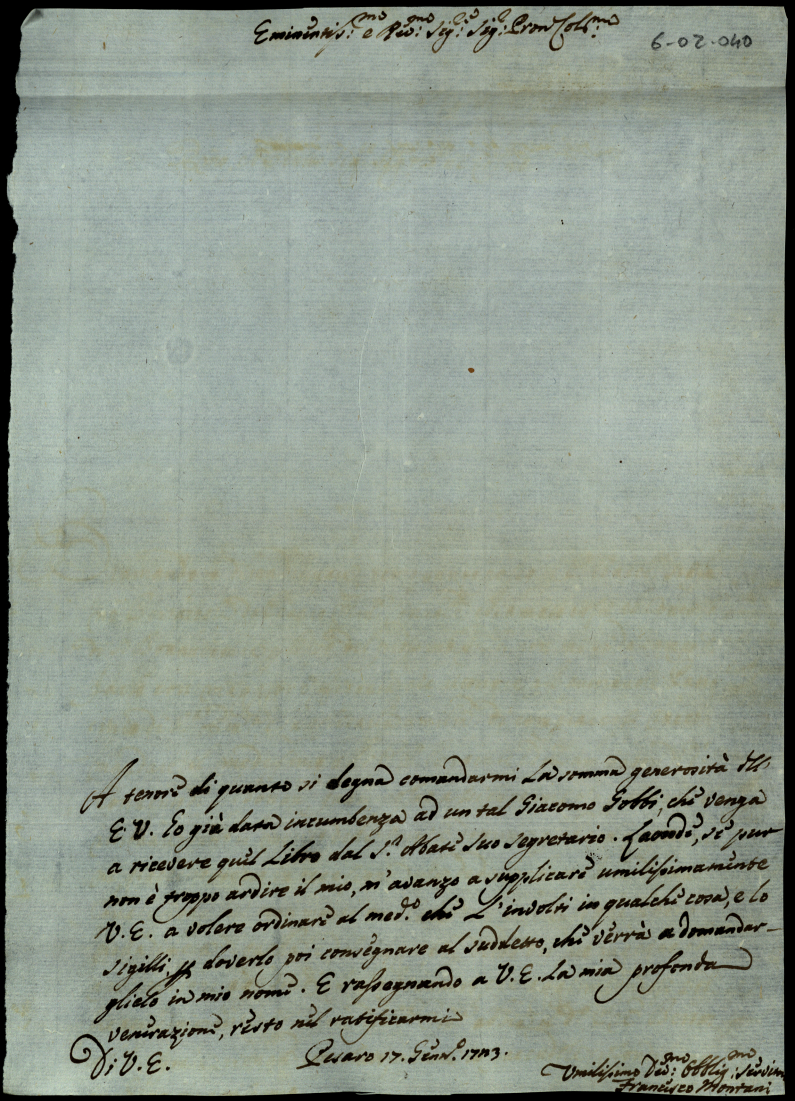 6-02-040
Eminentiss:mo e Rev:mo Sig:re Sig: Pron Col:mo
A tenore di quanto si degna comandarmi la somma generosità dell'
E.V. ò già data incumbenza ad un tal Giacomo Gobbi, che venga
a ricevere quel Libro dal S.r Abate suo segretario. Laonde, se pur
non è troppo ardire il mio, m'avanzo a supplicare umilissimamente
V.E. a volere ordinare al med.o che l'involti in qualche cosa, e lo
sigilli, per doverlo poi consegnare al suddetto, che verrà a domandar-
glielo in mio nome. E rassegnando a V.E. la mia profonda
venerazione, resto nel ratificarmi
Di V.E. Pesaro 17. Genn.o
Umilissimo Dev:mo Obblig:mo Servitor
Francesco Montani